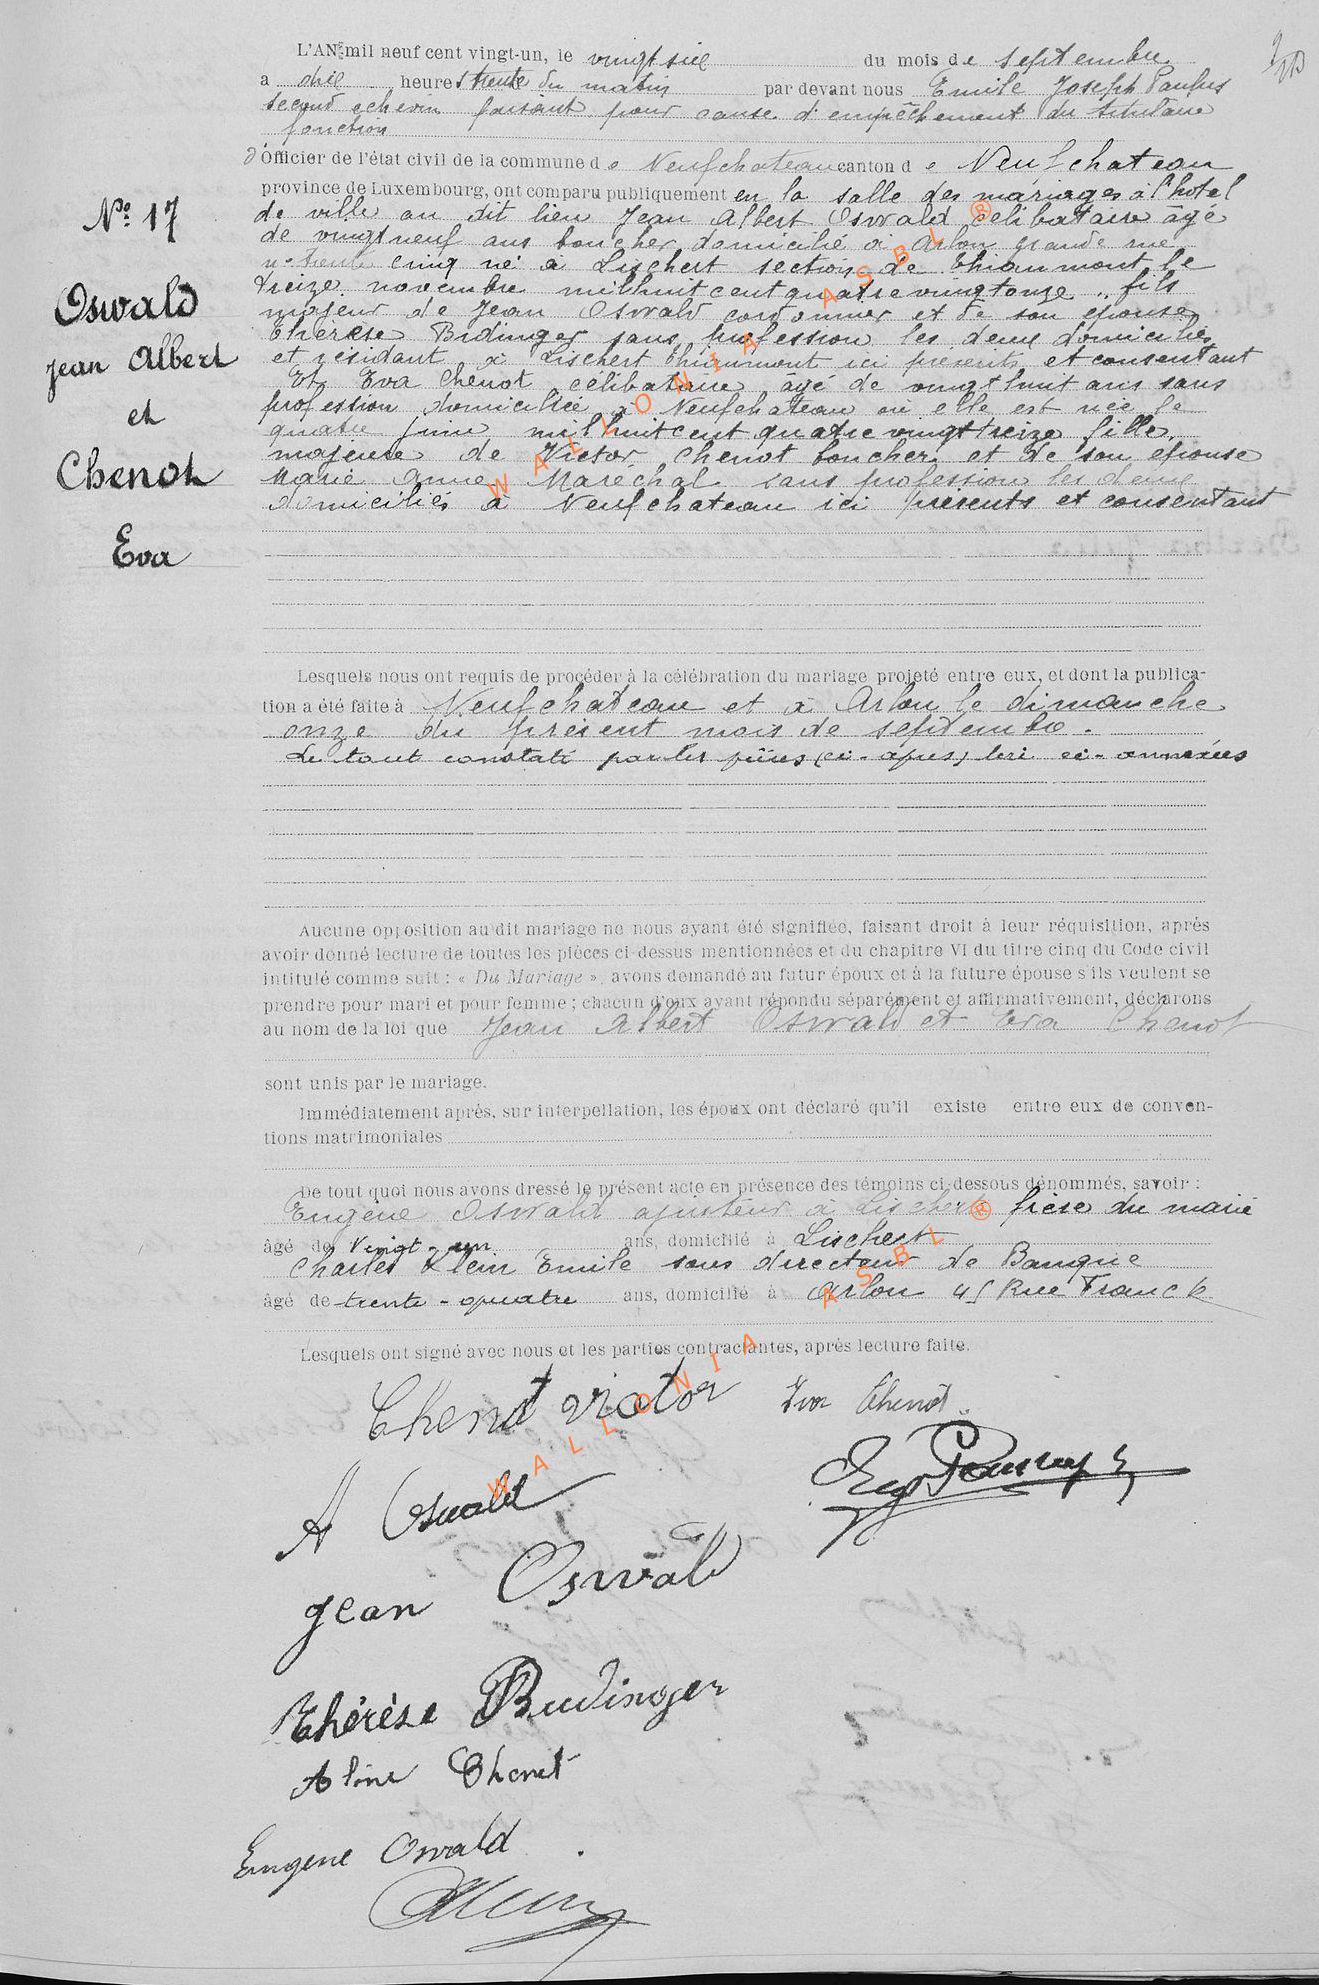 L'AN mil neuf cent vingt-un, le vingt six du mois de septembre
a dix heures trente du matin par devant nous Emile Joseph Paulus
second echevin faisant pour cause d'empêchement du titulaire
fonction
d'Officier de l'état civil de la commune de Neufchateau canton de Neufchateau
province de Luxembourg, ont comparu publiquement en la salle des mariages à l'hotel
de ville au dit lieu Jean Albert Oswald célibataire âgé
de vingt neuf ans boucher domicilié à Arlon grande rue
n° trente cinq né à Lischert section de Thiaumont le
treize novembre mil huit cent quatre vingt onze, fils
majeur de Jean Oswald cordonnier et de son épouse
Thérèse Budinger sans profession les deux domiciliés
et résidant à Lischert Thiaumont ici présents et consentant
Et Eva Chenot célibataire âgé de vingt huit ans sans
profession domiciliée à Neufchateau où elle est née le
quatre juin mil huit cent quatre vingt treize fille
majeure de Victor Chenot boucher et de son épouse
Marie Anne Maréchal sans profession les deux
domiciliés à Neufchateau ici présents et consentant
N° 17
Oswald
Jean Albert
et
Chenot
Eva
Lesquels nous ont requis de procéder à la célébration du mariage projeté entre eux, et dont la publica-
tion a été faite à Neufchateau et à Arlon le dimanche
onze du présent mois de septembre.
Le tout constaté par les pièces (ci-après) ci-annexées
Aucune opposition au dit mariage ne nous ayant été signifiée, faisant droit à leur réquisition, après
avoir donné lecture de toutes les pièces ci-dessus mentionnées et du chapitre VI du titre cinq du Code civil
intitulé comme suit : « Du Mariage », avons demandé au futur époux et à la future épouse s'ils veulent se
prendre pour mari et pour femme ; chacun d'eux ayant répondu séparément et affirmativement, déclarons
au nom de la loi que Jean Albert Oswald et Eva Chenot
sont unis par le mariage.
Immédiatement après, sur interpellation, les époux ont déclaré qu'il existe entre eux de conven-
tions matrimoniales
De tout quoi nous avons dressé le présent acte en présence des témoins ci-dessous dénommés, savoir :
Eugène Oswald ajusteur à Lischert frère du marié
âgé de Vingt-un ans, domicilié à Lischert
Charles Klein Emile sous directeur de Banque
âgé de trente-quatre ans, domicilié à Arlon 45 Rue Franck
Lesquels ont signé avec nous et les parties contractantes, après lecture faite.
Chenot Victor Eva Chenot
A Oswald
Jean Oswald
Thérèse Budinger
Aline Chenot
Eugene Oswald
WALLONIA ASBL ®
WALLONIA ASBL ®